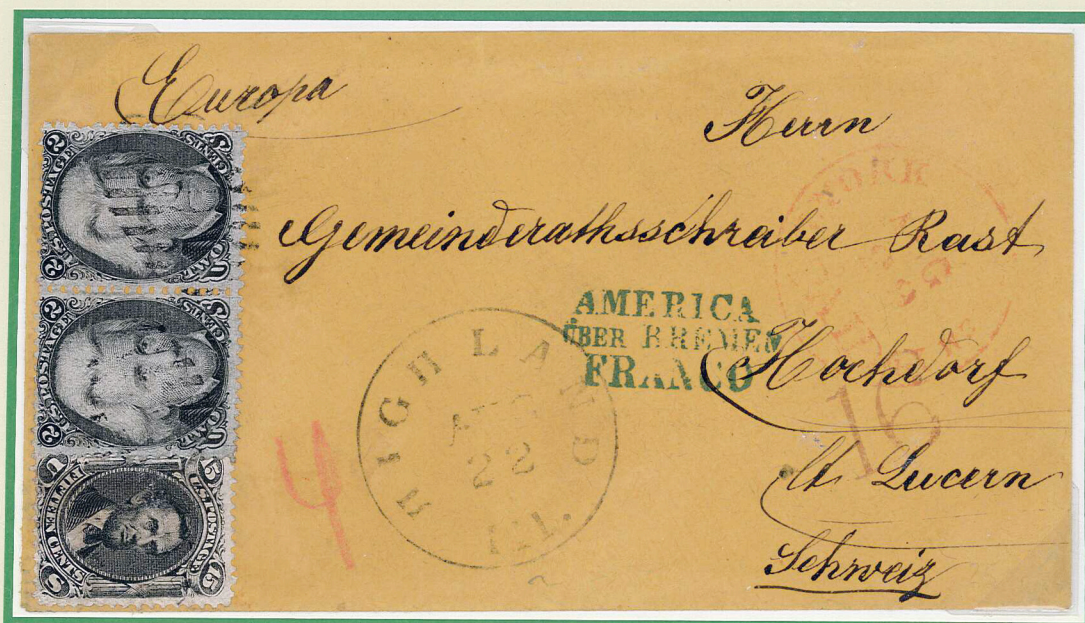 Europa
Herrn
Gemeinderathsschreiber Rast
Hochdorf
Ct. Lucern
Schweiz
AMERICA
ÜBER BREMEN
FRANCO
HIGHLAND
AUG
22
ILL.
YORK
16
4
U.S. POSTAGE
TWO CENTS
2 2
U.S. POSTAGE
TWO CENTS
2 2
U.S. POSTAGE
15